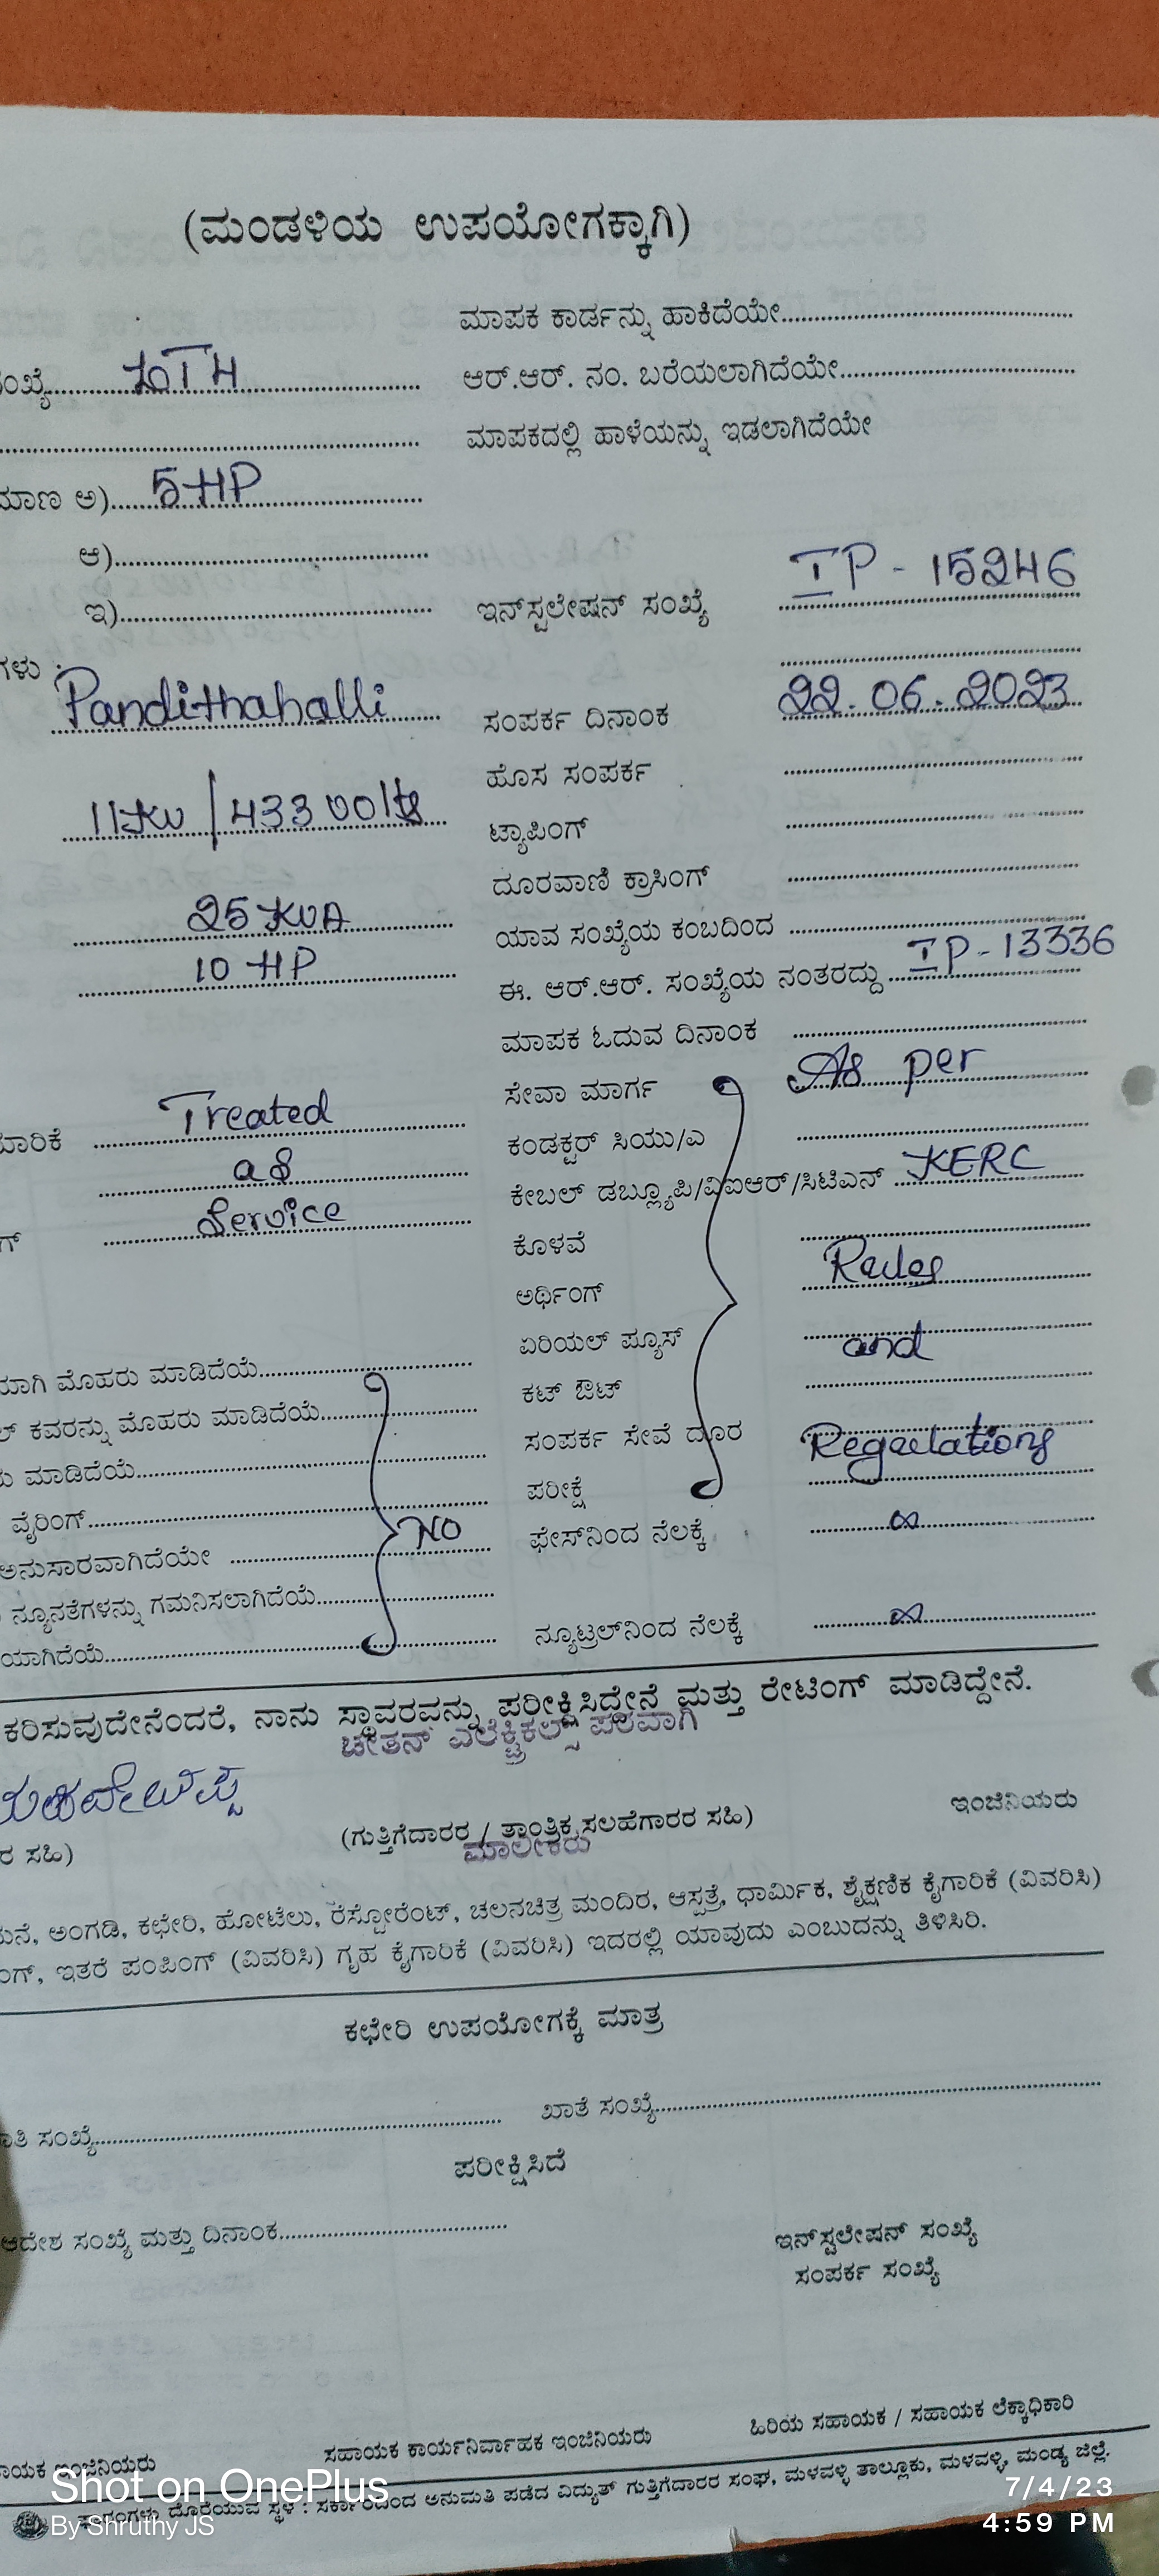 (ಮಂಡಳಿಯ ಉಪಯೋಗಕ್ಕಾಗಿ)
ಮಾಪಕ ಕಾರ್ಡನ್ನು ಹಾಕಿದೆಯೇ
ಆರ್.ಆರ್. ನಂ. ಬರೆಯಲಾಗಿದೆಯೇ
ಮಾಪಕದಲ್ಲಿ ಹಾಳೆಯನ್ನು ಇಡಲಾಗಿದೆಯೇ
ಅ) 5 HP
ಆ)
ಇ)
ಇನ್‌ಸ್ಟಲೇಷನ್ ಸಂಖ್ಯೆ IP - 15246
Pandithahalli
ಸಂಪರ್ಕ ದಿನಾಂಕ 22.06.2023
ಹೊಸ ಸಂಪರ್ಕ
11KV / 433 Volts
ಟ್ಯಾಪಿಂಗ್
ದೂರವಾಣಿ ಕ್ರಾಸಿಂಗ್
25 KVA
ಯಾವ ಸಂಖ್ಯೆಯ ಕಂಬದಿಂದ
10 HP
ಈ. ಆರ್.ಆರ್. ಸಂಖ್ಯೆಯ ನಂತರದ್ದು IP - 13336
ಮಾಪಕ ಓದುವ ದಿನಾಂಕ
ಸೇವಾ ಮಾರ್ಗ As per
Treated
ಕಂಡಕ್ಟರ್ ಸಿಯು/ಎ
as
ಕೇಬಲ್ ಡಬ್ಲ್ಯೂಪಿ/ವಿಐಆರ್/ಸಿಟಿಎಸ್ KERC
Service
ಕೊಳವೆ
ಅರ್ಥಿಂಗ್ Rules
ಏರಿಯಲ್ ಪ್ಯೂಸ್ and
ಮೊಹರು ಮಾಡಿದೆಯೆ
ಕಟ್ ಔಟ್
ಕವರನ್ನು ಮೊಹರು ಮಾಡಿದೆಯೆ
ಸಂಪರ್ಕ ಸೇವೆ ದೂರ Regulations
ಮಾಡಿದೆಯೆ
ಪರೀಕ್ಷೆ
ವೈರಿಂಗ್
NO
ಫೇಸ್‌ನಿಂದ ನೆಲಕ್ಕೆ ∞
ಅನುಸಾರವಾಗಿದೆಯೇ
ನ್ಯೂನತೆಗಳನ್ನು ಗಮನಿಸಲಾಗಿದೆಯೆ
ನ್ಯೂಟ್ರಲ್‌ನಿಂದ ನೆಲಕ್ಕೆ ∞
ನಾನು ಸ್ಥಾವರವನ್ನು ಪರೀಕ್ಷಿಸಿದ್ದೇನೆ ಮತ್ತು ರೇಟಿಂಗ್ ಮಾಡಿದ್ದೇನೆ.
ಚೇತನ್ ಎಲೆಕ್ಟ್ರಿಕಲ್ಸ್ ಪರವಾಗಿ
ಇಂಜಿನಿಯರು
ಸಹಿ)
(ಗುತ್ತಿಗೆದಾರರ / ತಾಂತ್ರಿಕ ಸಲಹೆಗಾರರ ಸಹಿ)
ಮಾಲೀಕರು
ಅಂಗಡಿ, ಕಛೇರಿ, ಹೋಟೆಲು, ರೆಸ್ಟೋರೆಂಟ್, ಚಲನಚಿತ್ರ ಮಂದಿರ, ಆಸ್ಪತ್ರೆ, ಧಾರ್ಮಿಕ, ಶೈಕ್ಷಣಿಕ ಕೈಗಾರಿಕೆ (ವಿವರಿಸಿ)
ಇತರೆ ಪಂಪಿಂಗ್ (ವಿವರಿಸಿ) ಗೃಹ ಕೈಗಾರಿಕೆ (ವಿವರಿಸಿ) ಇದರಲ್ಲಿ ಯಾವುದು ಎಂಬುದನ್ನು ತಿಳಿಸಿರಿ.
ಕಛೇರಿ ಉಪಯೋಗಕ್ಕೆ ಮಾತ್ರ
ಸಂಖ್ಯೆ ಖಾತೆ ಸಂಖ್ಯೆ
ಪರೀಕ್ಷಿಸಿದೆ
ಆದೇಶ ಸಂಖ್ಯೆ ಮತ್ತು ದಿನಾಂಕ
ಇನ್‌ಸ್ಟಲೇಷನ್ ಸಂಖ್ಯೆ
ಸಂಪರ್ಕ ಸಂಖ್ಯೆ
ಇಂಜಿನಿಯರು ಸಹಾಯಕ ಕಾರ್ಯನಿರ್ವಾಹಕ ಇಂಜಿನಿಯರು ಹಿರಿಯ ಸಹಾಯಕ / ಸಹಾಯಕ ಲೆಕ್ಕಾಧಿಕಾರಿ
ದೊರೆಯುವ ಸ್ಥಳ : ಸರ್ಕಾರದಿಂದ ಅನುಮತಿ ಪಡೆದ ವಿದ್ಯುತ್ ಗುತ್ತಿಗೆದಾರರ ಸಂಘ, ಮಳವಳ್ಳಿ ತಾಲ್ಲೂಕು, ಮಳವಳ್ಳಿ, ಮಂಡ್ಯ ಜಿಲ್ಲೆ.
Shot on OnePlus
By Shruthy JS
7/4/23
4:59 PM